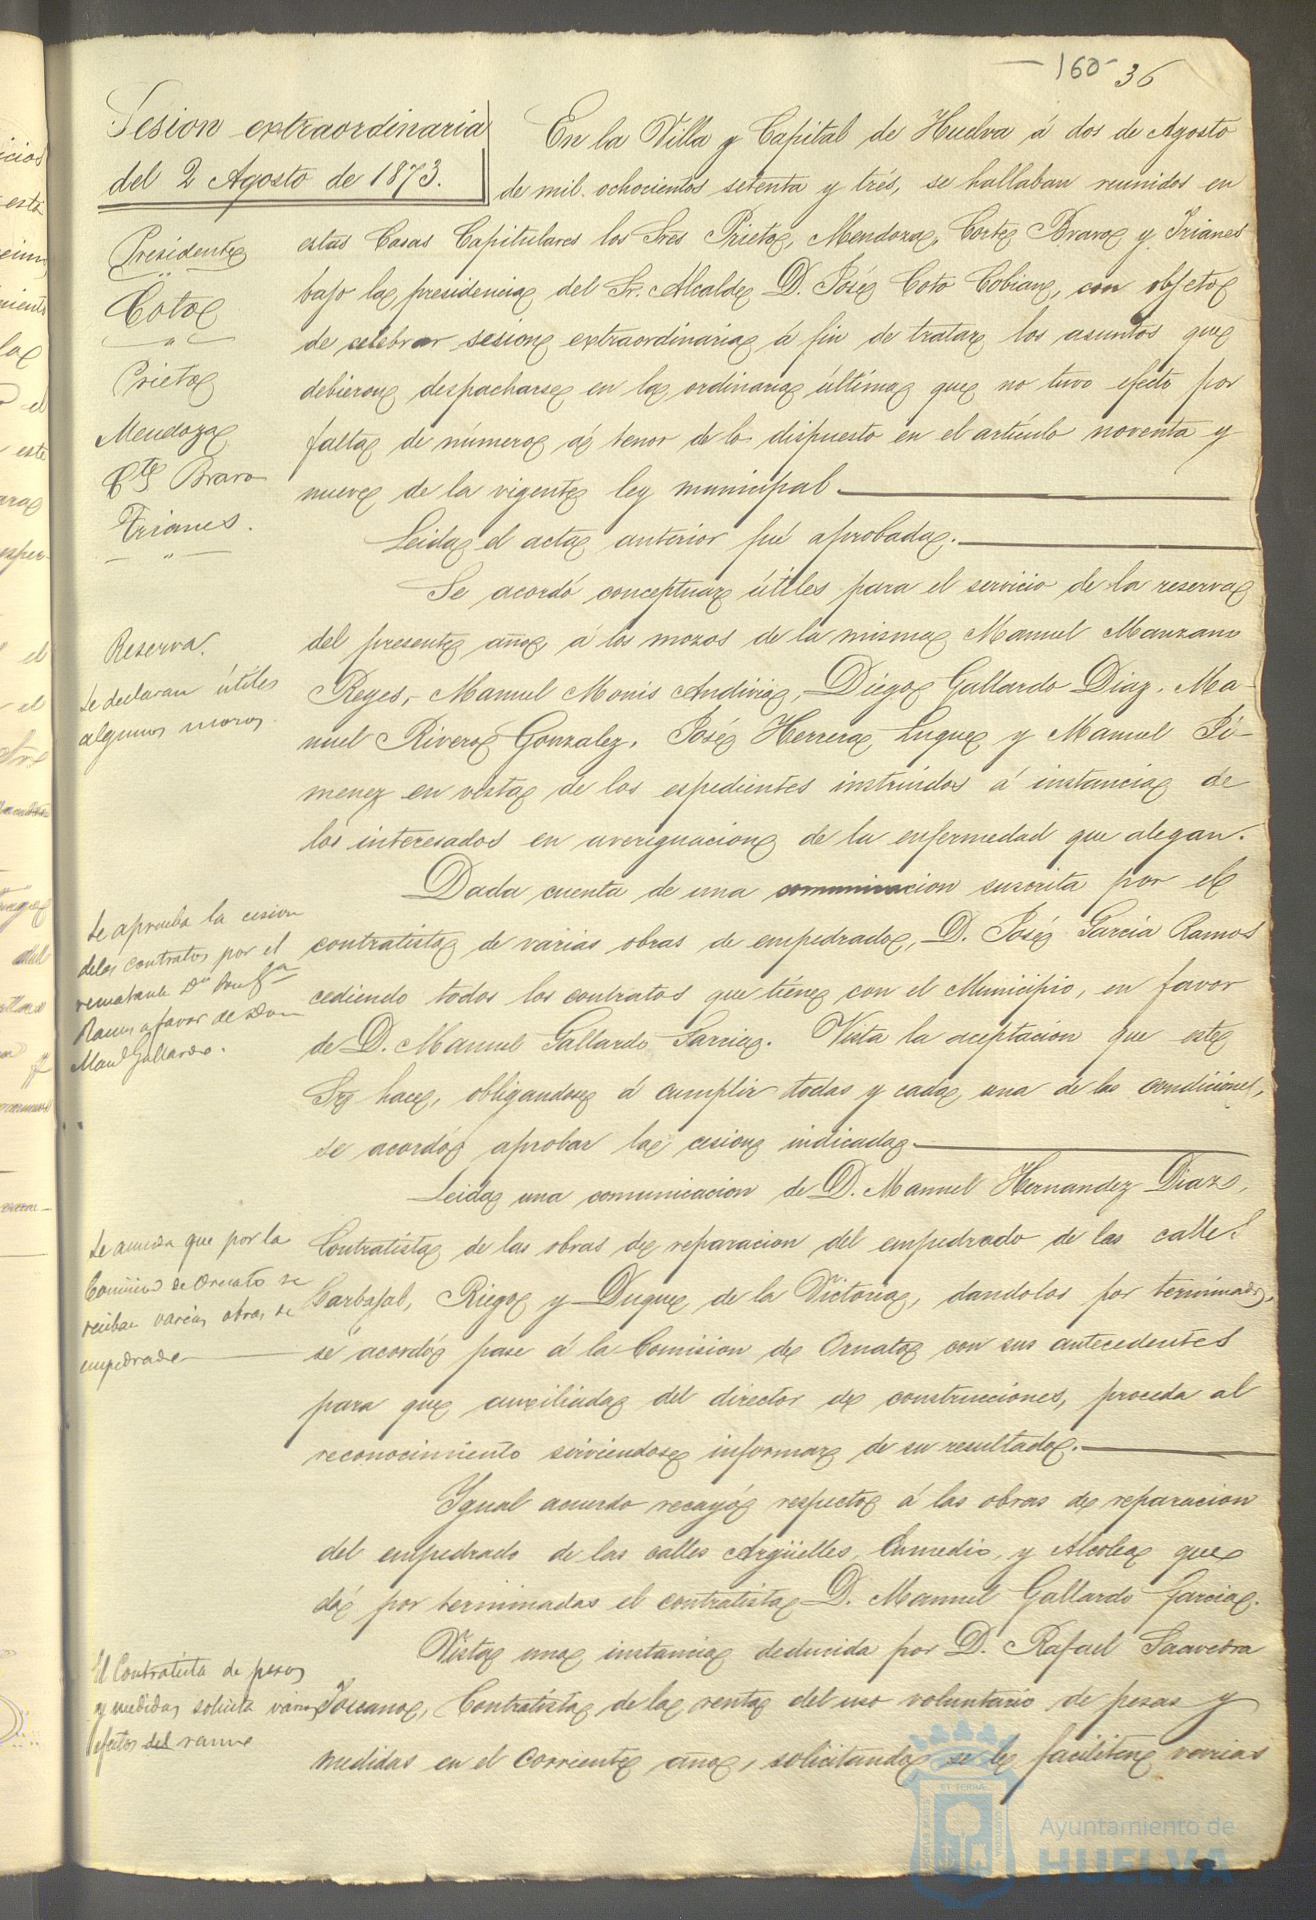 160 36
Sesion extraordinaria
del 2 Agosto de 1873.
En la Villa y Capital de Huelva á dos de Agosto
de mil ochocientos setenta y trés, se hallaban reunidos en
estas Casas Capitulares los Sres Prieto, Mendoza, Cortes Bravo y Trianes
bajo la presidencia del Sr. Alcalde D. José Coto Cobian, con objeto
de celebrar sesion extraordinaria á fin de tratar los asuntos que
debieron despacharse en la ordinaria última que no tuvo efecto por
falta de número á tenor de lo dispuesto en el artículo noventa y
nueve de la vigente ley municipal.
Presidente
Coto
Prieto
Mendoza
Ctes Bravo
Trianes.
Leida el acta anterior fué aprobada.
Reserva.
Se declaran útiles
algunos mozos.
Se acordó conceptuar útiles para el servicio de la reserva
del presente año, á los mozos de la misma Manuel Manzano
Reyes, Manuel Monis Andivia, Diégo Gallardo Diaz, Ma-
nuel Rivero Gonzalez, José Herrera Luque y Manuel Ji-
menez en vista de los espedientes instruidos á instancia de
los interesados en averiguacion de la enfermedad que alegan.
Se aprueba la cesion
de los contratos por el
rematante Dn
Ramos a favor de Don
Manl Gallardo.
Dada cuenta de una comunicacion suscrita por el
contratista de varias obras de empedrado, D. José Garcia Ramos
cediendo todos los contratos que tiéne con el Municipio, en favor
de D. Manuel Gallardo Garcia. Vista la aceptacion que este
Sr hace, obligandose á cumplir todas y cada una de las condiciones,
se acordó aprobar la cesion indicada.
Se acuerda que por la
Comision de Ornato se
reciban varias obras de
empedrado
Leida una comunicacion de D. Manuel Hernandez Diaz,
Contratista de las obras de reparacion del empedrado de las calles
Garbajal, Riego y Duque de la Victoria, dandolos por terminados,
se acordó pase á la Comision de Ornato con sus antecedentes
para que auxiliada del director de construcciones, proceda al
reconocimiento sirviendose informar de su resultado.
Ygual acuerdo recayó respecto á las obras de reparacion
del empedrado de las calles Argüelles, Enmedio, y Alcolea que
dá por terminadas el contratista D. Manuel Gallardo Garcia.
El Contratista de pesas
y medidas solicita varios
efectos del ramo
Vista una instancia deducida por D. Rafael Saavedra
Toscano, Contratista de la renta del uso voluntario de pesas y
medidas en el corriente año, solicitando se le faciliten varias
Ayuntamiento de
HUELVA